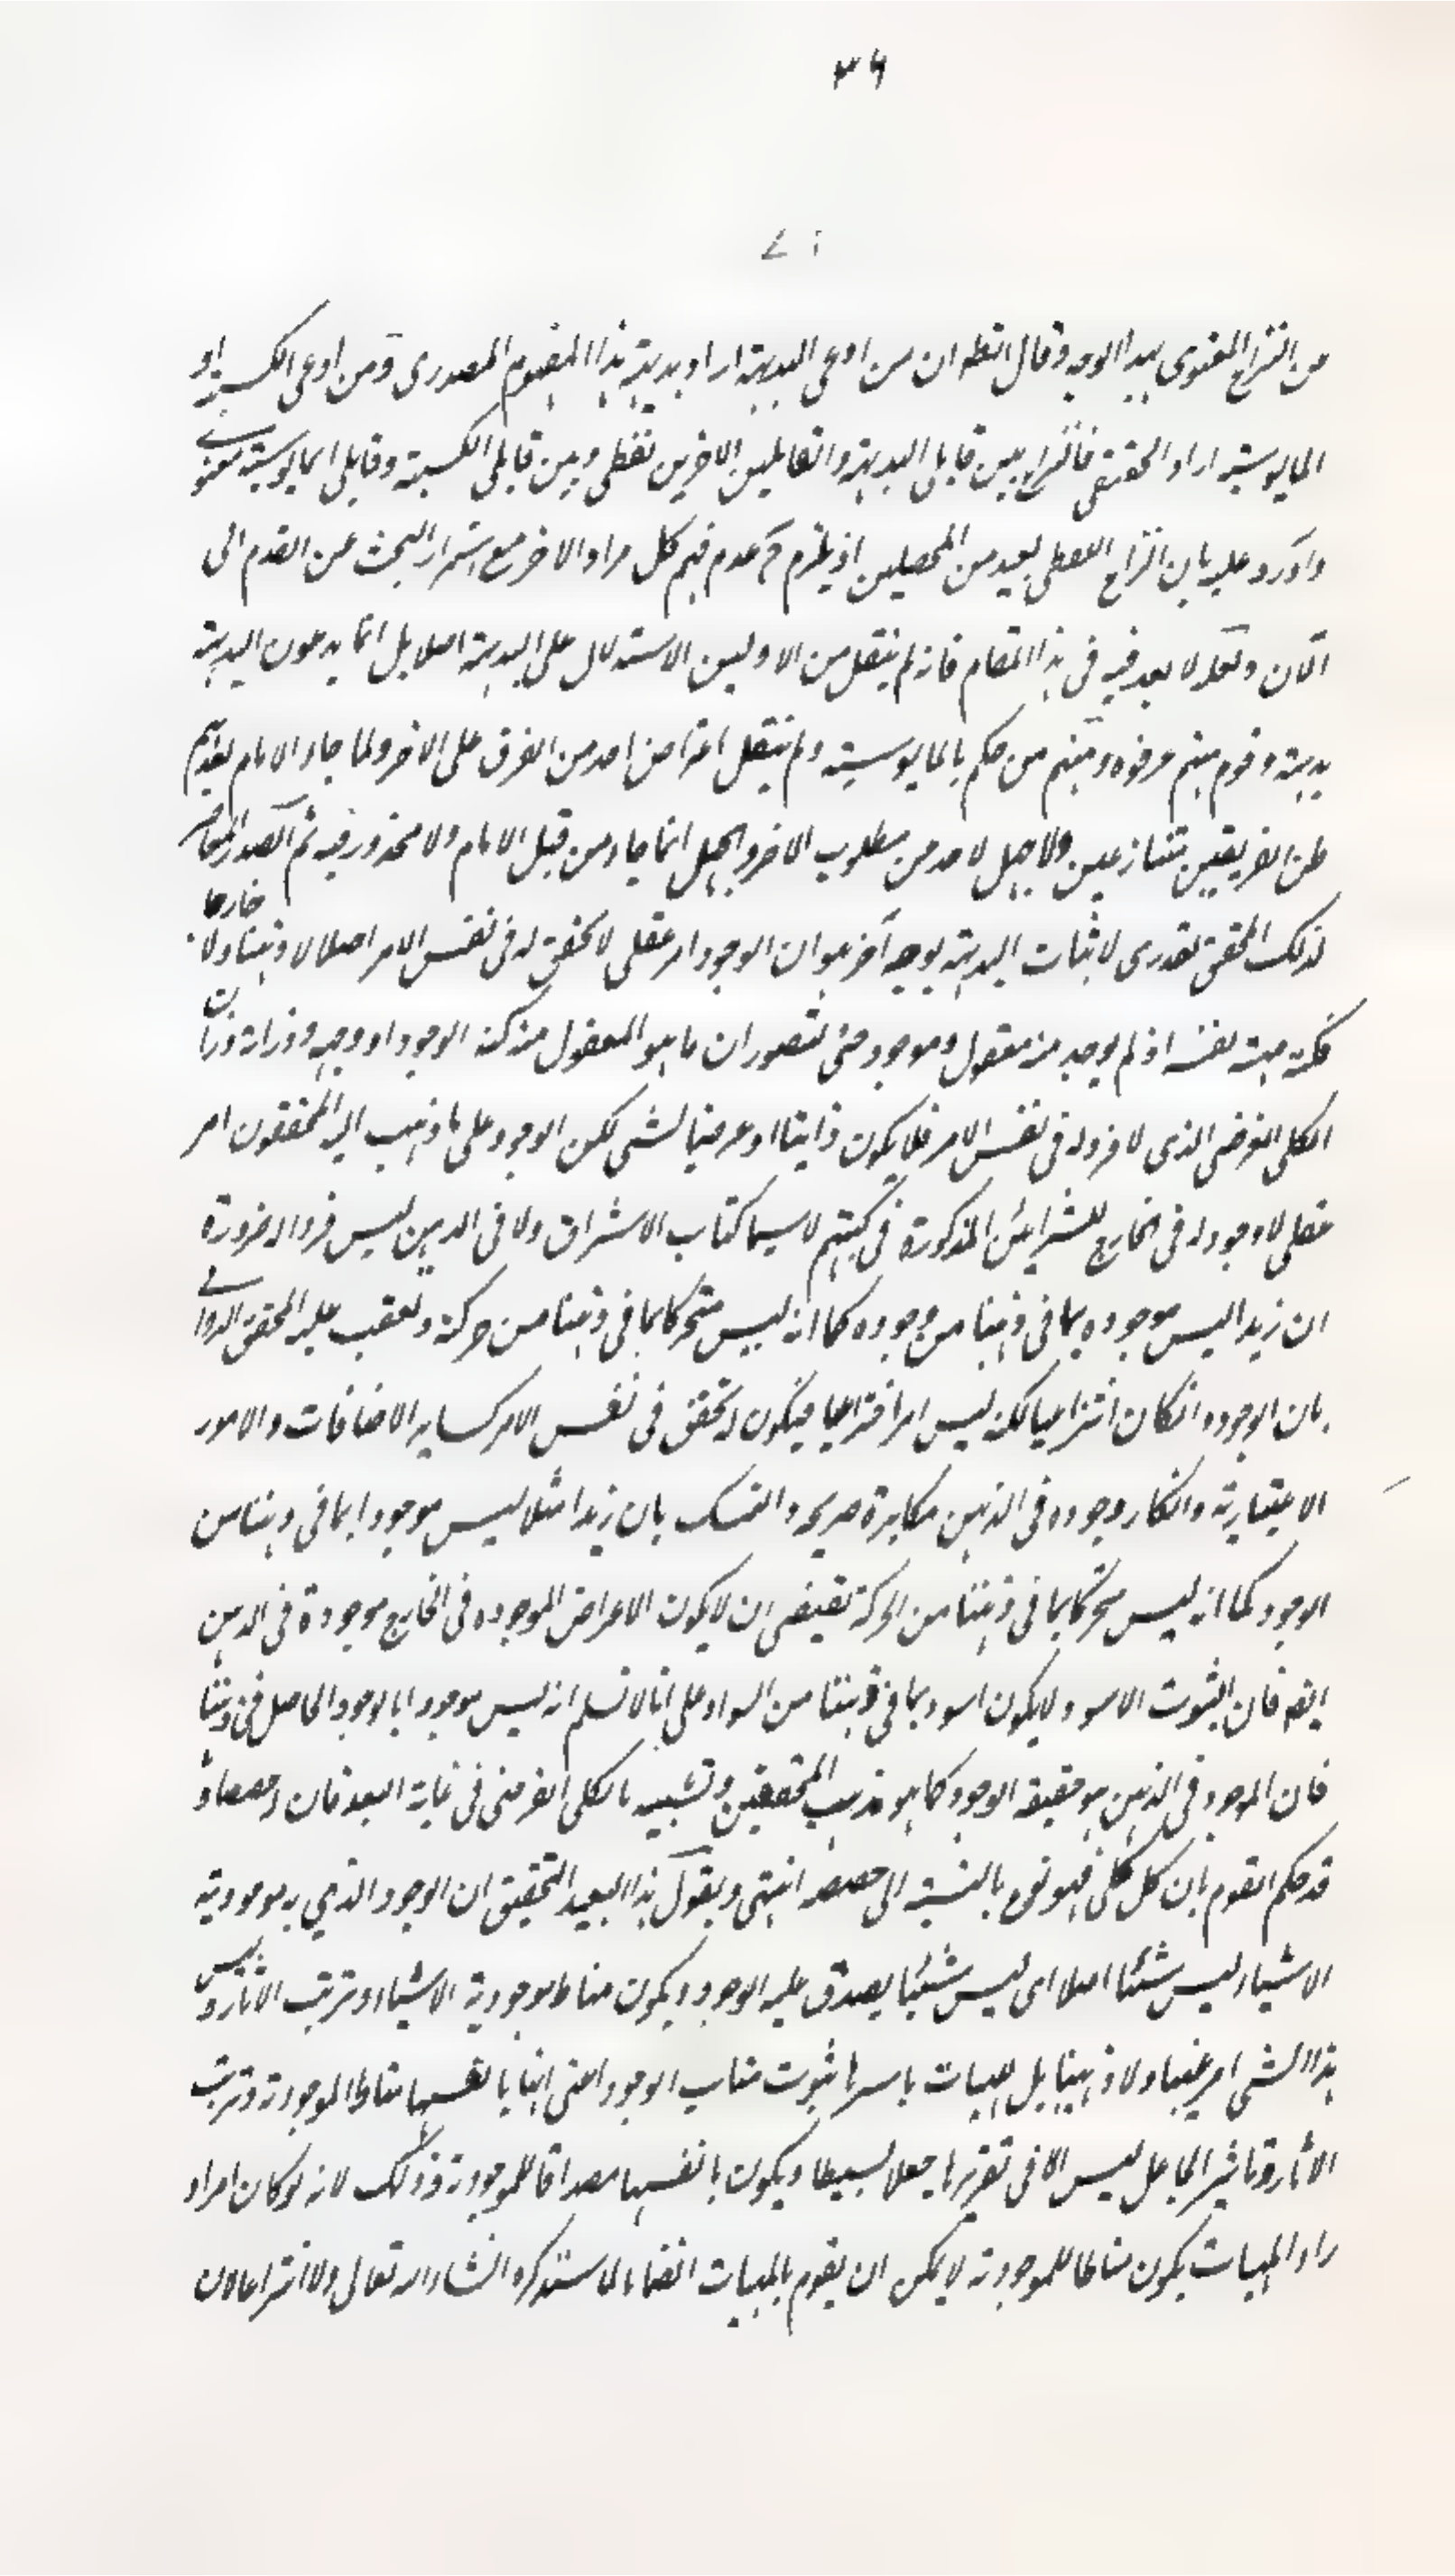 ٣٩
من النزاع المعنوى بهذا الوجه وقال الظ ان من ادعى البديهة اراد بديهة هذا المفهوم المصدرى ومن ادعى الكسبية او
المايوسية اراد الحقيقى فالنزاع بين قابلى البديهة والقابلين الاخرين لفظى وبين قابلى الكسبية وقابلى المايوسية معنوى
واورد عليه بان النزاع اللفظى بعيد من المحصلين اذ يلزم ح عدم فهم كل مراد الاخر مع استمرار البحث عن القدم الى
الآن ولعله لا بعد فيه فى هذا المقام فانه لم ينقل من الاولين الاستدلال على البديهة اصلا بل انما يدعون البديهة
بديهة وقوم منهم عرفوه ومنهم من حكم بالمايوسية ولم ينقل اعتراض احد من الفرق على الاخر ولما جاء الامام بعدهم
ظن الفريقين متنازعين ولا جهل لاحد من مطلوب الاخر والجهل انما جاء من قبل الامام ولا محذور فيه ثم الصدر المعاصر
لذلك المحقق تصدى لاثبات البديهة بوجه آخر هو ان الوجود امر عقلى لا تحقق له فى نفس الامر اصلا لا ذهنا ولا خارجا
فكنهه عين نفسه اذ لم يوجد منه معقول وموجود حتى يتصور ان ما هو المعقول منه كنه الوجود او وجهه وزانه وزان
الكلى الفرضى الذى لا فرد له فى نفس الامر فلا يكون ذاتيا او عرضيا لشى لكن الوجود على ما ذهب اليه المحققون امر
عقلى لا وجود له فى الخارج للبراهين المذكورة فى كتبهم لا سيما كتاب الاشراق ولا فى الذهن ليس فردا له ضرورة
ان زيدا ليس موجودا بما فى ذهننا من وجوده كما انه ليس متحركا بما فى ذهننا من حركته وتعقب عليه المحقق الدوانى
بان الوجود وانكان انتزاعيا لكنه ليس امرا اختراعيا فيكون له تحقق فى نفس الامر كساير الاضافات والامور
الاعتبارية وانكار وجوده فى الذهن مكابرة صريحة والتمسك بان زيدا مثلا ليس موجودا بما فى ذهننا من
الوجود كما انه ليس متحركا بما فى ذهننا من الحركة يقتضى ان لا يكون الاعراض الموجودة فى الخارج موجودة فى الذهن
ايضا فان الثوب الاسود لا يكون اسود بما فى ذهننا من السواد على انا لا نسلم انه ليس موجودا بالوجود الحاصل فى ذهننا
فان الموجود فى الذهن هو حقيقة الوجود كما هو مذهب المحققين وتشبيهه بالكلى الفرضى فى غاية البعد فان له حصصا و
قد حكم القوم بان كل كلى فهو نوع بالنسبة الى حصصه انتهى ويقول هذا العبد التحقيق ان الوجود الذي به موجودية
الاشياء ليس شيئا اصلا اى ليس شيئا يصدق عليه الوجود ويكون مناط موجودية الاشياء وترتب الآثار وليس
هذا الشى امر عينا ولا ذهنيا بل المهيات باسرها ثبوت مناب الوجود اعنى انها بانفسها مناط الموجودية وترتب
الآثار وتاثير الجاعل ليس الا فى تقررها جعلا بسيطا ويكون بانفسها مصداقا للموجودية وذلك لانه لو كان امرا و
راء المهيات يكون مناطا للموجودية لا يمكن ان يقوم بالمهيات انضماما لما ستذكره انشاء الله تعالى ولا انتزاعا لان